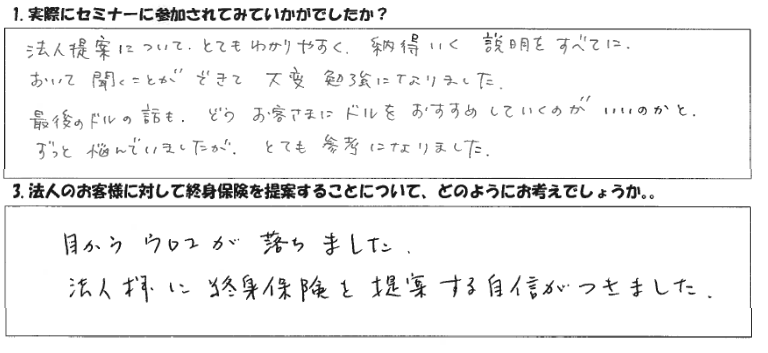 1. 実際にセミナーに参加されてみていかがでしたか？
法人提案について、とてもわかりやすく、納得いく説明をすべてに、
おいて聞くことができて大変勉強になりました。
最後のドルの話も、どうお客さまにドルをおすすめしていくのがいいのかと、
ずっと悩んでいましたが、とても参考になりました。
3. 法人のお客様に対して終身保険を提案することについて、どのようにお考えでしょうか。。
目からウロコが落ちました。
法人様に終身保険を提案する自信がつきました。